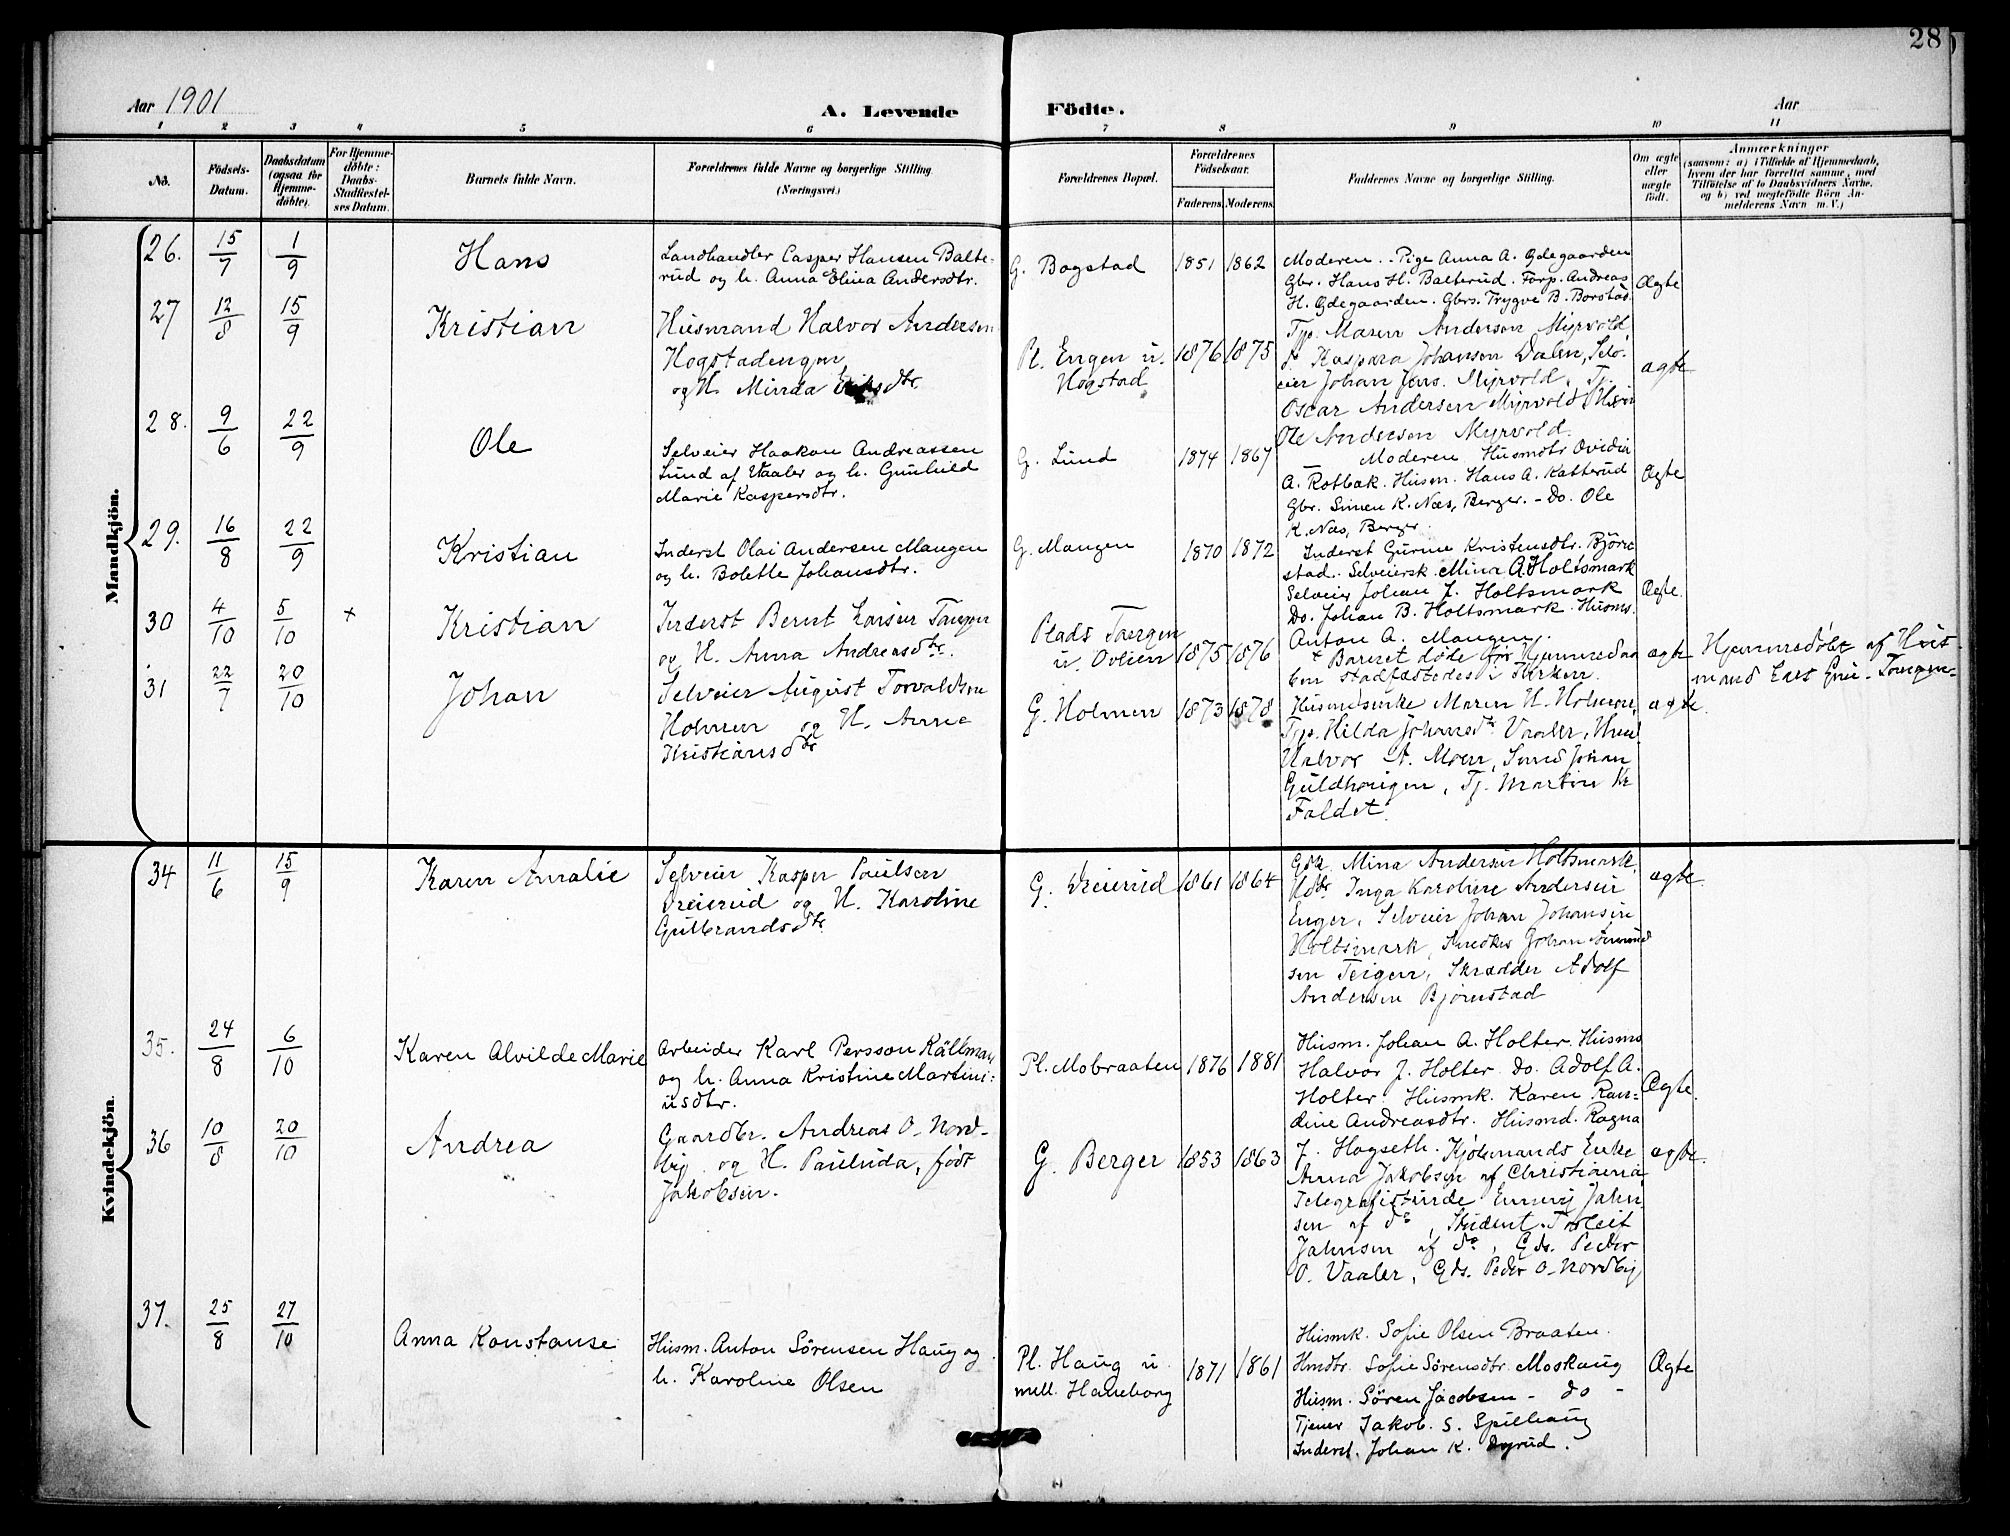 28
Aar 1901
A. Levende Födte.
Aar
1 2 3 4 5 6 7 8 9 10 11
No.
Födsels-Datum.
Daabsdatum (ogsaa for Hjemme-döbte).
For Hjemme-döbte: Daabs-Stadfæstel-ses Datum.
Barnets fulde Navn.
Forældrenes fulde Navne og borgerlige Stilling.
(Næringsvei.)
Forældrenes Bopæl.
Forældrenes Födselsaar.
Faderens. Moderens.
Faddernes Navne og borgerlige Stilling.
Om ægte eller uægte födt.
Anmærkninger
(saasom: a) i Tilfælde af Hjemmedaab, hvem der har forrettet samme, med Tilföielse af to Daabsvidners Navne, og b) ved uægtefödte Börn An-melderens Navn m. V.)
Mandkjön.
26. 15/7 1/9 Hans
Landhandler Casper Hansen Balte-
rud og h. Anna Elina Andersdtr.
G. Bogstad 1851 1862
Moderen. Pige Anna A. Ødegaarden
Gbr. Hans H. Balterud. Forp. Andreas
H. Ødegaarden. Gbrs. Trygve B. Borstad.
Ægte
27 12/8 15/9 Kristian
Husmand Halvor Andersen
Hogstadengen
og H. Minda dtr.
Pl. Engen u. Hogstad 1876 1875
Tjp. Maren Andersen Myrvold
Kaspara Johansen Dalen, Selv-
eier Johan Jans. Myrvold, Tj.
Oscar Andersen Myrvold, Husm
Ole Andersen Myrvold.
ægte
28. 9/6 22/9 Ole
Selveier Haakon Andreassen
Lund af Vaaler og h. Gunhild
Marie Kaspersdtr.
G. Lund 1874 1867
Moderen Husmdtr Ovidia
A. Rotbak. Husm. Hans A. Katterud
Gbr. Simen K. Næs, Berger. - Do. Ole
K. Næs, Berger.
Ægte
29. 16/8 22/9 Kristian
Inderst Olai Andersen Mangen
og h. Bolette Johansdtr.
G. Mangen 1870 1872
Inderst Gurine Kristensdtr. Björne
stad. Selveiersk. Mina A. Holtsmark
Selveier Johan J. Holtsmark
Do. Johan B. Holtsmark. Husms.
Anton A. Mangen.
Ægte.
30 4/10 5/10 + Kristian
Inderst Bernt Larsen Tangen
og H. Anna Andreasdtr.
Plads Tangen u. Ovlien 1875 1876
+ Barnet døde før Hjemmedaa
ben stadfæstedes i Kirken.
ægte
Hjemmedøbt af Hus-
mand Lars Tangen.
31 22/7 20/10 Johan
Selveier August Torvaldsen
Holmen og H. Anne
Kristiansdtr
G. Holmen 1873 1878
Husmdsenke Maren H. Holmen,
Tjp. Hilda Johansdtr Vaaler,
Halvor A. Moen, Johan
Guldhaugen, Tj. Martin
Faldet.
ægte.
Kvindekjön.
34 11/6 15/9 Karen Amalie
Selveier Kasper Paulsen
Dreierud og H. Karoline
Gulbrandsdtr.
G. Dreierud 1861 1864
Mina Andersen Holtsmark,
Inga Karoline Andersen
Enger, Selveier Johan Johansen
Holtsmark, Snedker Johan
sen Teigen, Skrædder Adolf
Andersen Bjørnstad
ægte.
35. 24/8 6/10 Karen Alvilde Marie
Arbeider Karl Persson Källman
og h. Anna Kristine Martini-
usdtr.
Pl. Mobraaten 1876 1881
Husm. Johan A. Holter. Husms
Halvor J. Holter. Do. Adolf A.
Holter. Husmk. Karen Ran-
dine Andreasdtr. Husmd. Ragna
J. Hagseth.
Ægte.
36 10/8 20/10 Andrea
Gaardbr. Andreas O. Nord-
by og H. Paulida, født
Jakobsen.
G. Berger 1853 1863
Kjøbmands Enke
Anna Jakobsen af Christiania
Telegrafistinde Emmy Jahn-
sen af do, Student Torleif
Jahnsen af do, Gds. Peder
O. Vaaler, Gds. Peder O. Nordby
ægte.
37. 25/8 27/10 Anna Konstanse
Husm. Anton Sørensen Haug og
h. Karoline Olsen
Pl. Haug u. mell. Haneborg 1871 1861
Husmk. Sofie Olsen Braaten.
Hmdtr. Sofie Sørensdtr. Moskaug
Husm. Søren Jacobsen - do -
Tjener Jakob S. Spilhaug
Inderst. Johan K. Dyrud.
Ægte